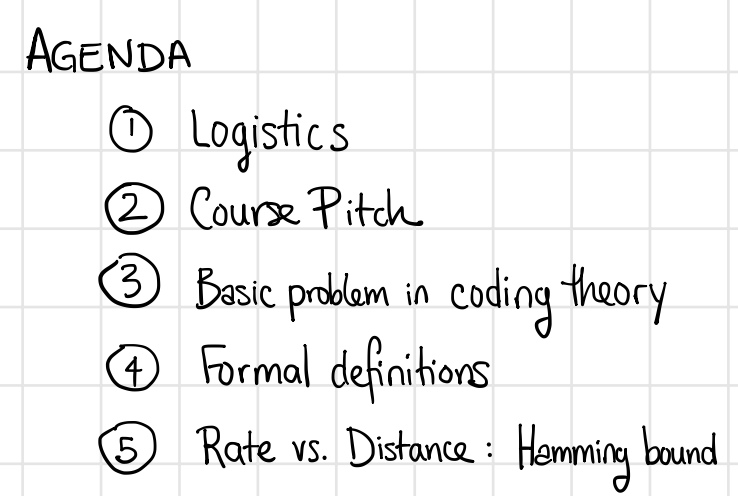 AGENDA
① Logistics
② Course Pitch
③ Basic problem in coding theory
④ Formal definitions
⑤ Rate vs. Distance: Hamming bound